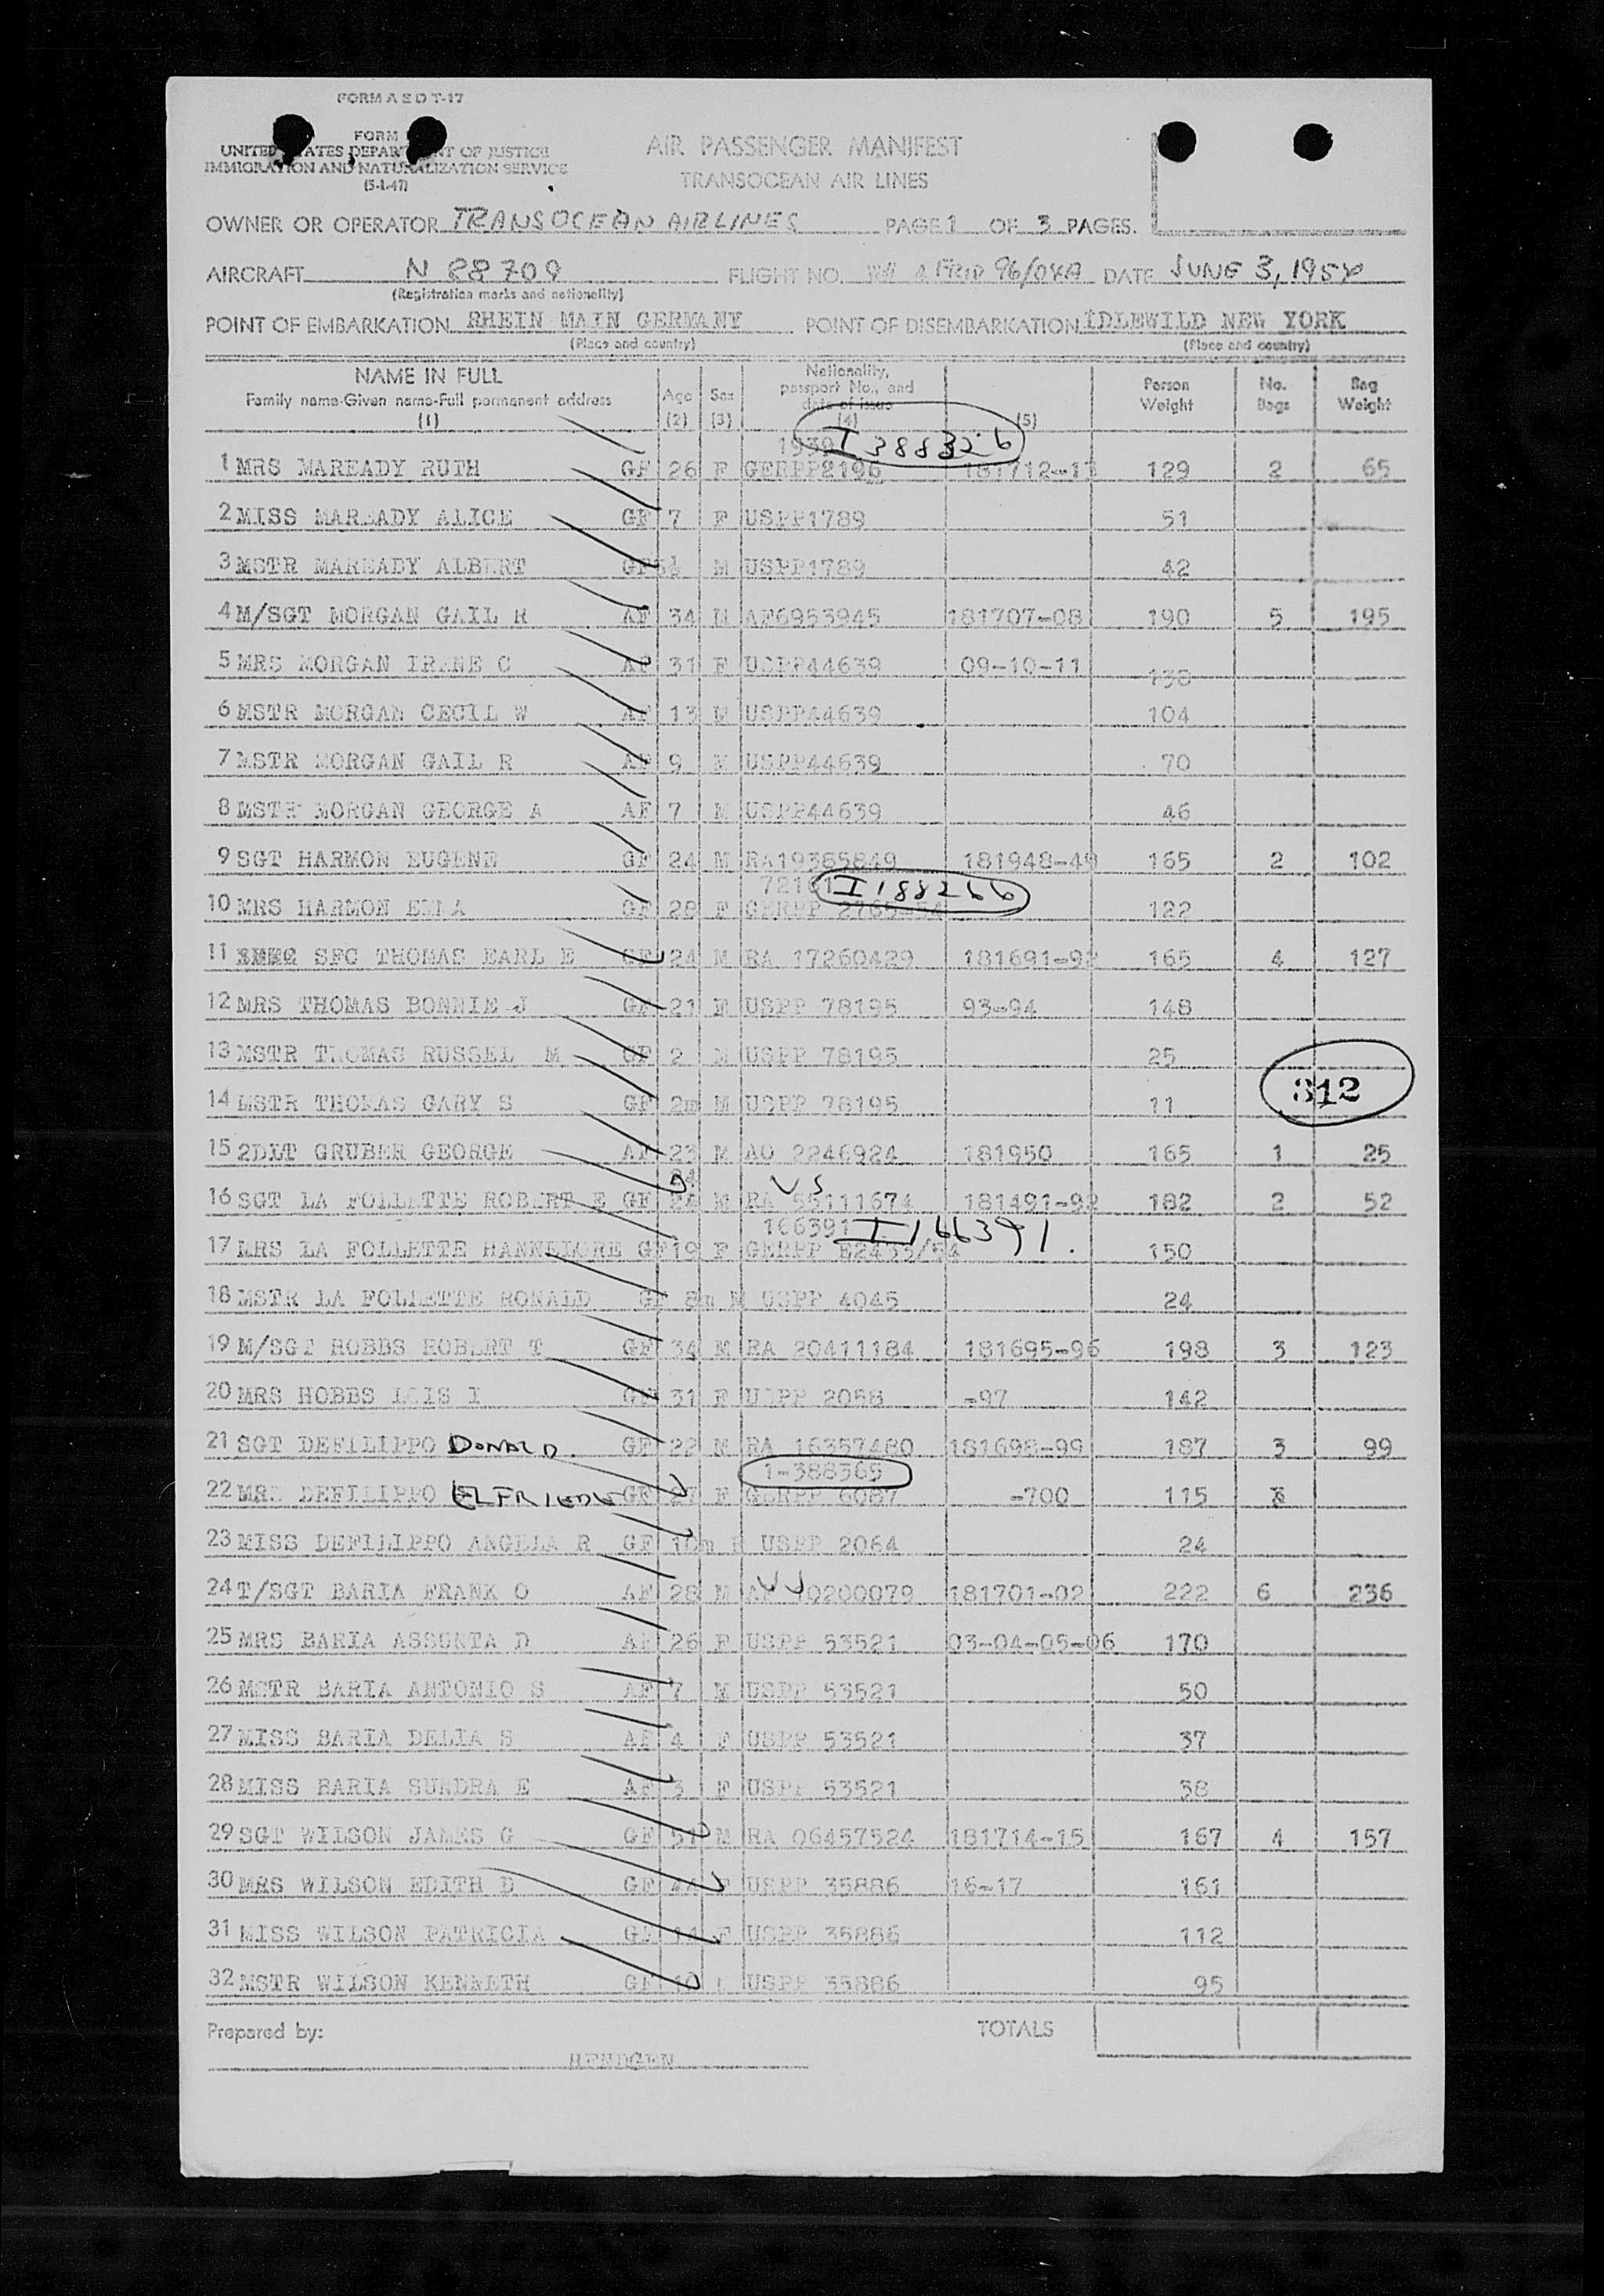 FORM A E D T-17
FORM
UNITED STATES DEPARTMENT OF JUSTICE
IMMIGRATION AND NATURALIZATION SERVICE
(5-1-47)
AIR PASSENGER MANIFEST
TRANSOCEAN AIR LINES
OWNER OR OPERATOR TRANSOCEAN AIRLINES PAGE 1 OF 3 PAGES.
AIRCRAFT N 88709 FLIGHT NO. 96/04A DATE JUNE 3, 1954
(Registration marks and nationality)
POINT OF EMBARKATION RHEIN MAIN GERMANY POINT OF DISEMBARKATION IDLEWILD NEW YORK
(Place and country) (Place and country)
NAME IN FULL Age Sex Nationality, passport No., and date of issue Person Weight No. Bags Bag Weight
Family name-Given name-Full permanent address
(1) (2) (3) (4) (5)
1939 I 388326
1 MRS MAREADY RUTH GF 26 F GERPP2196 181712-13 129 2 65
2 MISS MAREADY ALICE GF 7 F USPP1789 51
3 MSTR MAREADY ALBERT GF 5½ M USPP1789 42
4 M/SGT MORGAN GAIL R AF 34 M AF6953945 181707-08 190 5 195
5 MRS MORGAN IRENE C AF 31 F USPP44639 09-10-11 138
6 MSTR MORGAN CECIL W AF 13 M USPP44639 104
7 MSTR MORGAN GAIL R AF 9 M USPP44639 70
8 MSTR MORGAN GEORGE A AF 7 M USPP44639 46
9 SGT HARMON EUGENE GF 24 M RA19385849 181948-49 165 2 102
I 188266
10 MRS HARMON ELLA GF 28 F GERPP 122
11 SFC THOMAS EARL E GF 24 M RA 17260429 181691-92 165 4 127
12 MRS THOMAS BONNIE J GF 21 F USPP 78195 93-94 148
13 MSTR THOMAS RUSSEL M GF 2 M USPP 78195 25
14 MSTR THOMAS GARY S GF 2m M USPP 78195 11
312
15 2DLT GRUBER GEORGE AF 23 M AO 2246924 181950 165 1 25
24 US
16 SGT LA FOLLETTE ROBERT E GF M RA 55111674 181491-92 182 2 52
166391 I 166391
17 MRS LA FOLLETTE HANNELORE GF 19 F GERPP E2433/54 150
18 MSTR LA FOLLETTE RONALD GF 8m M USPP 4045 24
19 M/SGT HOBBS ROBERT T GF 34 M RA 20411184 181695-96 198 3 123
20 MRS HOBBS LOIS I GF 31 F USPP 2058 -97 142
21 SGT DEFILIPPO DONALD. GF 22 M RA 16357480 181698-99 187 3 99
1-388365
22 MRS DEFILIPPO ELFRIEDE GF 27 F GERPP 6087 -700 115
23 MISS DEFILIPPO ANGELA R GF 10m F USPP 2064 24
US
24 T/SGT BARIA FRANK O AF 28 M AF 181701-02 222 6 236
25 MRS BARIA ASSUNTA D AF 26 F USPP 53521 03-04-05-06 170
26 MSTR BARIA ANTONIO S AF 7 M USPP 53521 50
27 MISS BARIA DELIA S AF 4 F USPP 53521 37
28 MISS BARIA SUNDRA E AF 3 F USPP 53521 38
29 SGT WILSON JAMES G GF 51 M RA 06457524 181714-15 167 4 157
30 MRS WILSON EDITH D GF F USPP 35886 16-17 161
31 MISS WILSON PATRICIA GF 14 F USPP 35886 112
32 MSTR WILSON KENNETH GF 10 USPP 35886 95
Prepared by: TOTALS
HENDGEN